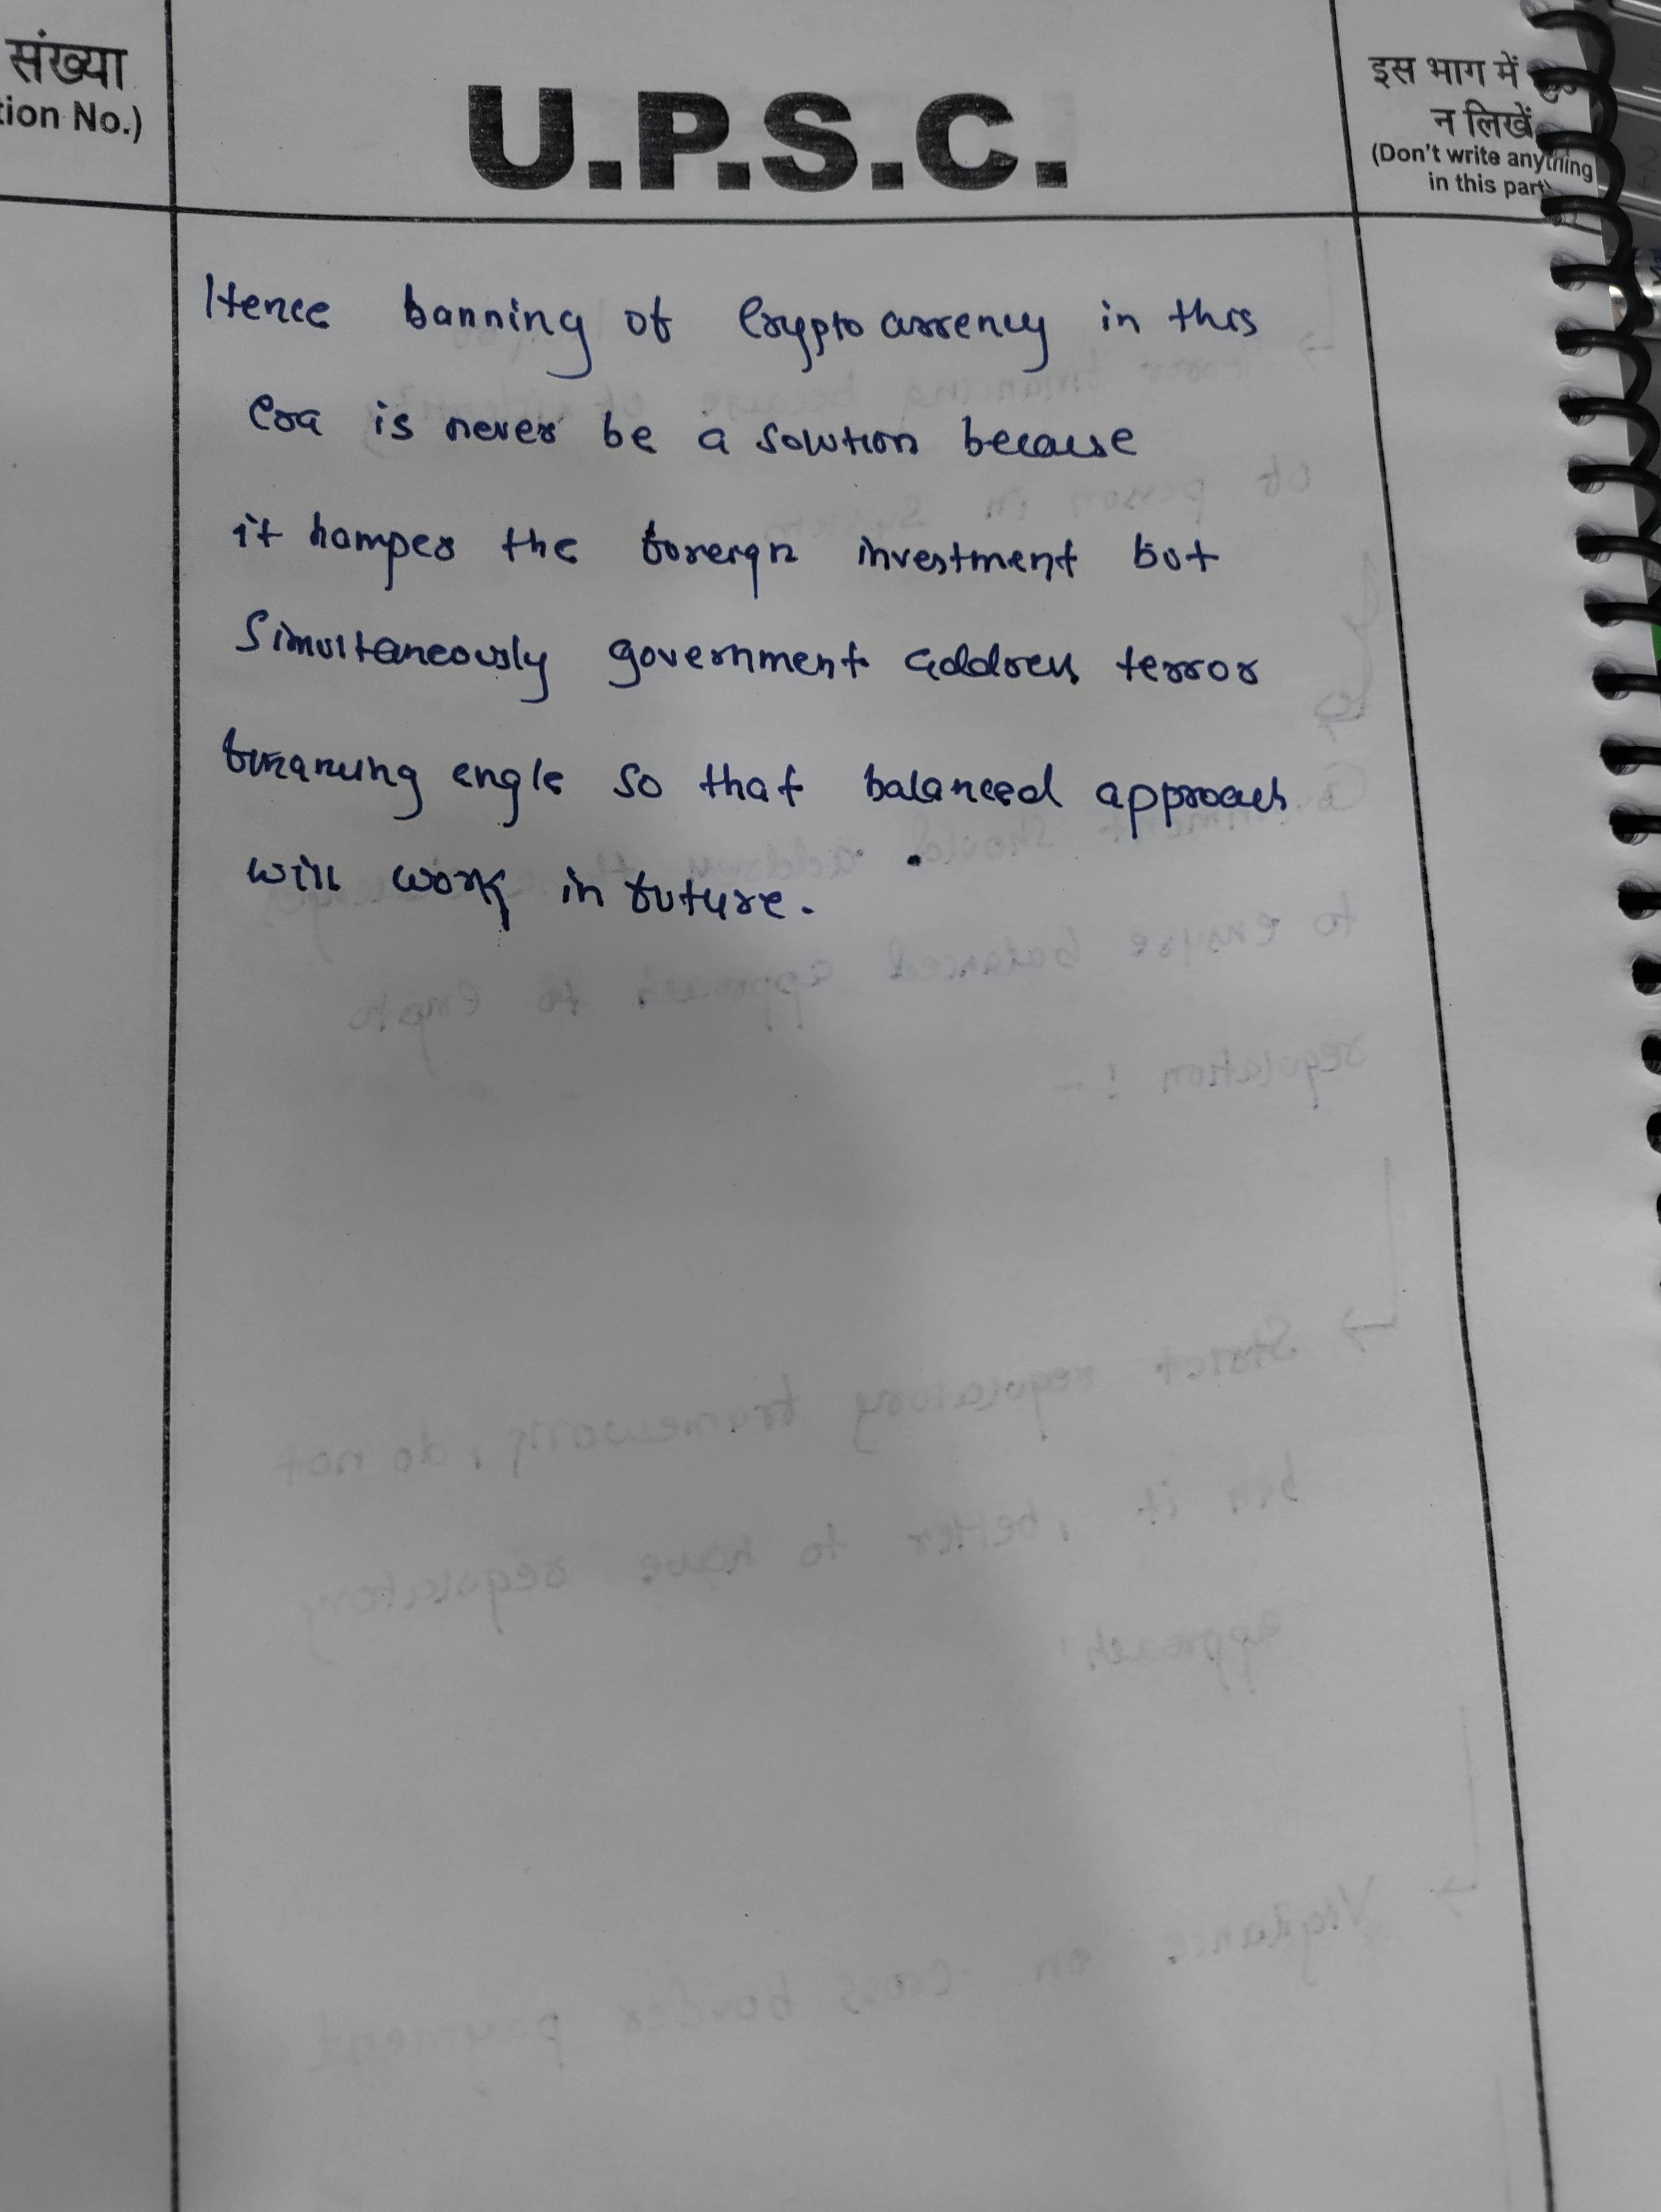 संख्या
tion No.)
U.P.S.C.
इस भाग में कुछ
न लिखें
(Don't write anything
in this part)
Hence banning of Cryptocurrency in this
Era is never be a solution because
it hampes the foreign investment but
Simultaneously government address terror
financing engle so that balanced approach
will work in future.